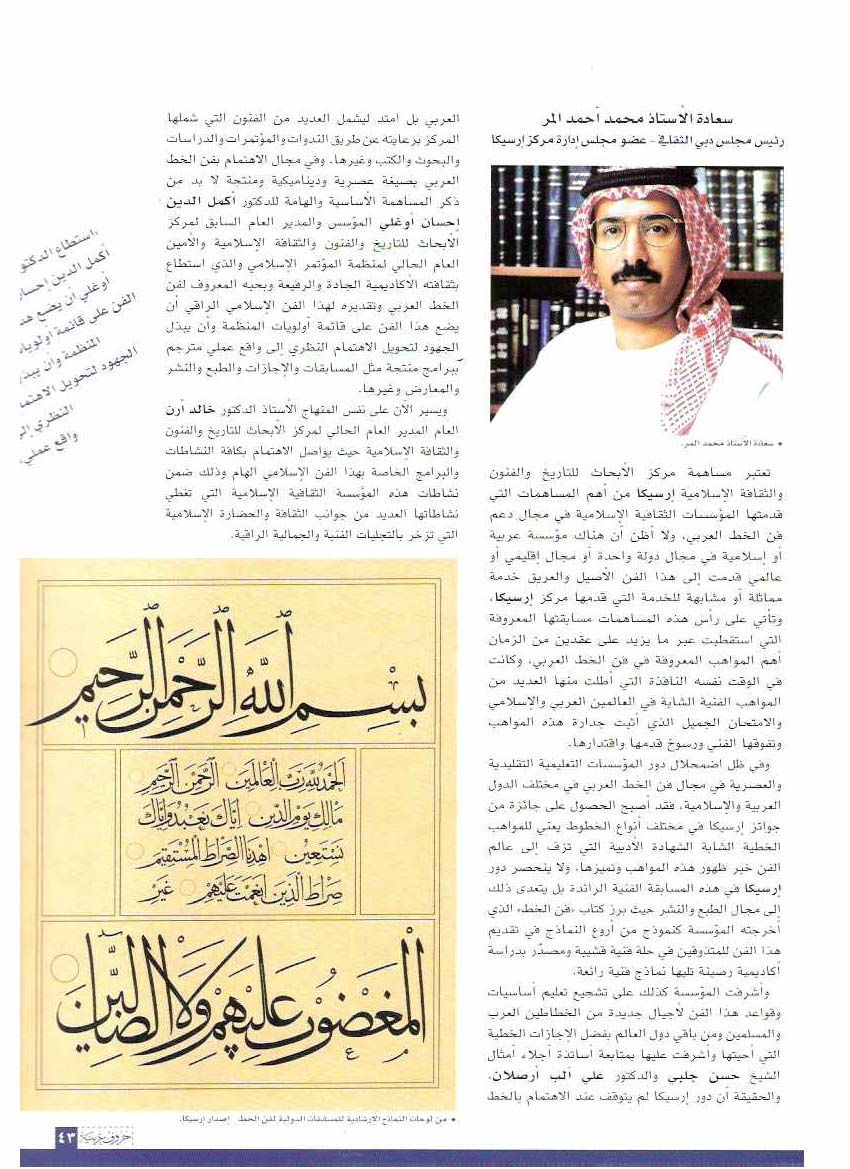 سعادة الأستاذ محمد أحمد المر
رئيس مجلس دبي الثقافي - عضو مجلس إدارة مركز إرسيكا
• سعادة الأستاذ محمد المر.
تعتبر مساهمة مركز الأبحاث للتاريخ والفنون
والثقافة الإسلامية إرسيكا من أهم المساهمات التي
قدمتها المؤسسات الثقافية الإسلامية في مجال دعم
فن الخط العربي، ولا أظن أن هناك مؤسسة عربية
أو إسلامية في مجال دولة واحدة أو مجال إقليمي أو
عالمي قدمت إلى هذا الفن الأصيل والعريق خدمة
مماثلة أو مشابهة للخدمة التي قدمها مركز إرسيكا،
وتأتي على رأس هذه المساهمات مسابقتها المعروفة
التي استقطبت عبر ما يزيد على عقدين من الزمان
أهم المواهب المعروفة في فن الخط العربي، وكانت
في الوقت نفسه النافذة التي أطلت منها العديد من
المواهب الفنية الشابة في العالمين العربي والإسلامي
والامتحان الجميل الذي أثبت جدارة هذه المواهب
وتفوقها الفني ورسوخ قدمها واقتدارها.
وفي ظل اضمحلال دور المؤسسات التعليمية التقليدية
والعصرية في مجال فن الخط العربي في مختلف الدول
العربية والإسلامية، فقد أصبح الحصول على جائزة من
جوائز إرسيكا في مختلف أنواع الخطوط يعني للمواهب
الخطية الشابة الشهادة الأدبية التي تزف إلى عالم
الفن خبر ظهور هذه المواهب وتميزها، ولا ينحصر دور
إرسيكا في هذه المسابقة الفنية الرائدة بل يتعدى ذلك
إلى مجال الطبع والنشر حيث برز كتاب «فن الخط» الذي
أخرجته المؤسسة كنموذج من أروع النماذج في تقديم
هذا الفن للمتذوقين في حلة فنية قشيبة ومصدّر بدراسة
أكاديمية رصينة تليها نماذج فنية رائعة.
وأشرفت المؤسسة كذلك على تشجيع تعليم أساسيات
وقواعد هذا الفن لأجيال جديدة من الخطاطين العرب
والمسلمين ومن باقي دول العالم بفضل الإجازات الخطية
التي أحيتها وأشرفت عليها بمتابعة أساتذة أجلاء أمثال
الشيخ حسن جلبي والدكتور علي ألب أرصلان،
والحقيقة أن دور إرسيكا لم يتوقف عند الاهتمام بالخط
العربي بل امتد ليشمل العديد من الفنون التي شملها
المركز برعايته عن طريق الندوات والمؤتمرات والدراسات
والبحوث والكتب وغيرها. وفي مجال الاهتمام بفن الخط
العربي بصيغة عصرية وديناميكية ومنتجة لا بد من
ذكر المساهمة الأساسية والهامة للدكتور أكمل الدين
إحسان أوغلي المؤسس والمدير العام السابق لمركز
الأبحاث للتاريخ والفنون والثقافة الإسلامية والأمين
العام الحالي لمنظمة المؤتمر الإسلامي والذي استطاع
بثقافته الأكاديمية الجادة والرفيعة وبحبه المعروف لفن
الخط العربي وتقديره لهذا الفن الإسلامي الراقي أن
يضع هذا الفن على قائمة أولويات المنظمة وأن يبذل
الجهود لتحويل الاهتمام النظري إلى واقع عملي مترجم
ببرامج منتجة مثل المسابقات والإجازات والطبع والنشر
والمعارض وغيرها.
ويسير الآن على نفس المنهاج الأستاذ الدكتور خالد أرن
العام المدير العام الحالي لمركز الأبحاث للتاريخ والفنون
والثقافة الإسلامية حيث يواصل الاهتمام بكافة النشاطات
والبرامج الخاصة بهذا الفن الإسلامي الهام وذلك ضمن
نشاطات هذه المؤسسة الثقافية الإسلامية التي تغطي
نشاطاتها العديد من جوانب الثقافة والحضارة الإسلامية
التي تزخر بالتجليات الفنية والجمالية الراقية.
استطاع الدكتو
أكمل الدين إحسا
أوغلي أن يضع هذ
الفن على قائمة أولويا
المنظمة وأن يبذ
الجهود لتحويل الاهتم
النظري إلى
واقع عملي
بسم الله الرحمن الرحيم
الحمد لله رب العالمين الرحمن الرحيم
مالك يوم الدين إياك نعبد وإياك
نستعين اهدنا الصراط المستقيم
صراط الذين أنعمت عليهم غير
المغضوب عليهم ولا الضالين
• من لوحات النماذج الإرشادية للمسابقات الدولية لفن الخط إصدار إرسيكا.
حروف عربية ٤٣